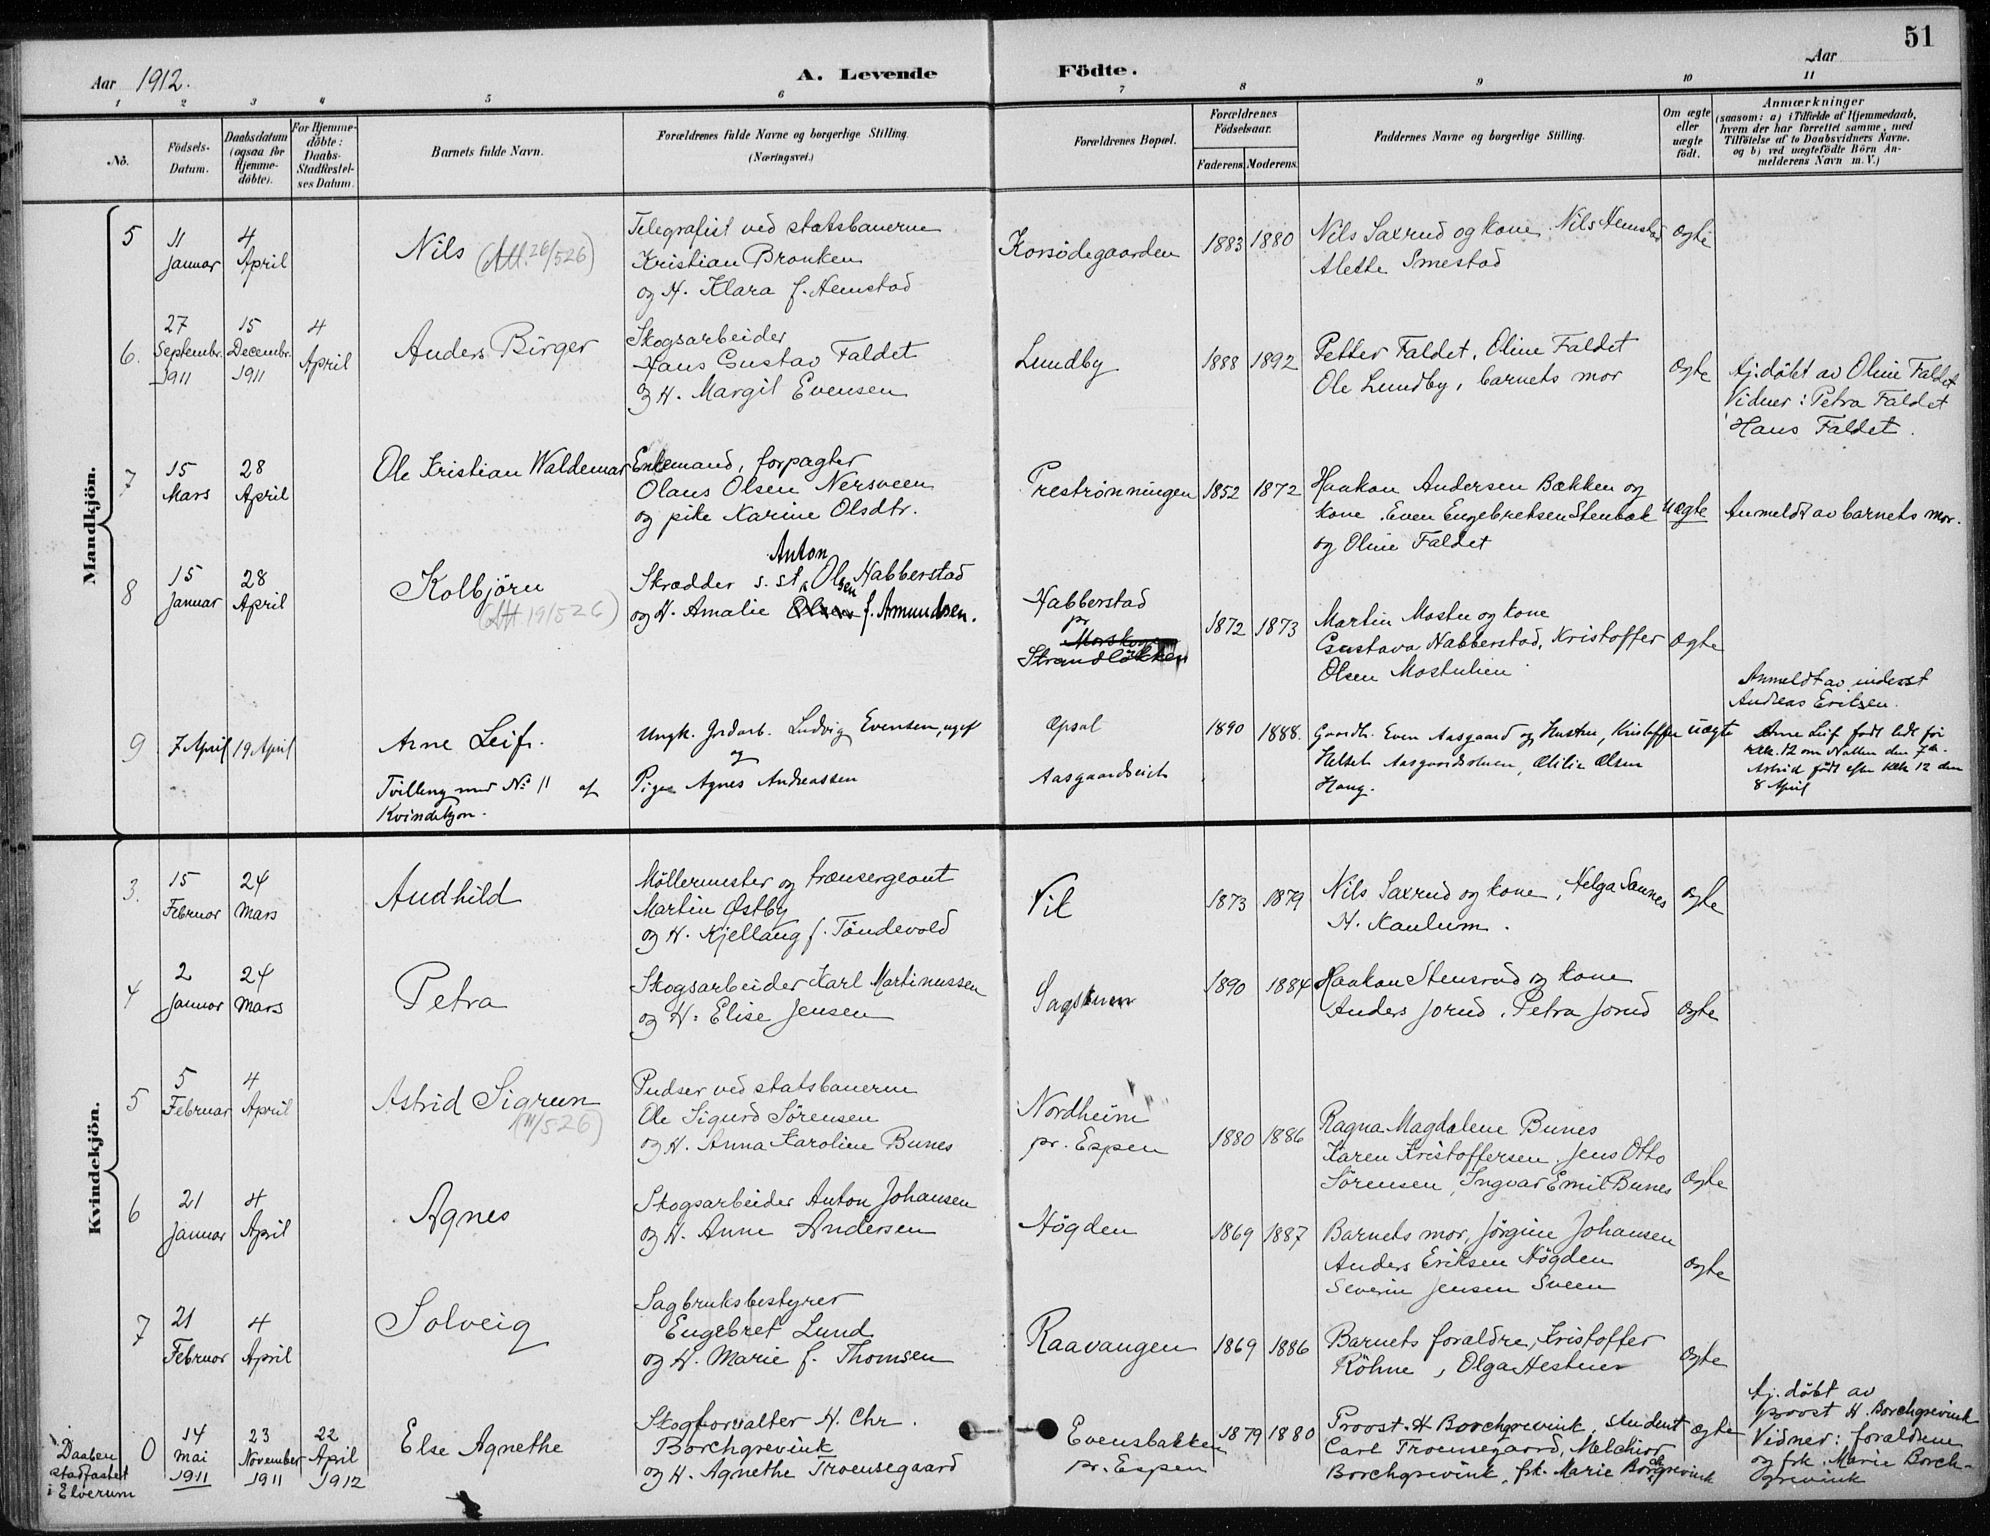 51
Aar 1912.
A. Levende Födte.
Aar
1 2 3 4 5 6 7 8 9 10 11
No.
Födsels-Datum.
Daabsdatum (ogsaa for Hjemme-döbte).
For Hjemme-döbte: Daabs-Stadfæstel-ses Datum.
Barnets fulde Navn.
Forældrenes fulde Navne og borgerlige Stilling.
(Næringsvei.)
Forældrenes Bopæl.
Forældrenes Födselsaar.
Faderens. Moderens.
Faddernes Navne og borgerlige Stilling.
Om ægte eller uægte födt.
Anmærkninger
(saasom: a) i Tilfælde af Hjemmedaab,
hvem der har forrettet samme, med
Tilföielse af to Daabsvidners Navne.
og b) ved uægtefödte Börn An-
melderens Navn m. V.)
Mandkjön.
5
11 Januar
4 April
Nils (Att. 26/526)
Telegrafist ved statsbanerne
Kristian Bronken
og H. Klara f. Hemstad
Korsödegaarden
1883 1880
Nils Saxrud og kone. Nils Hemstad
Alette Smestad
ægte
6.
27 Septembr. 1911
15 Decembr. 1911
4 April
Anders Birger
Skogsarbeider
Hans Gustav Faldet
og H. Margit Evensen
Lundby
1888 1892
Petter Faldet, Oline Faldet
Ole Lundby, barnets mor
ægte
Hj.döbt av Oline Faldet
Vidner: Petra Faldet
Hans Faldet.
7
15 Mars
28 April
Ole Kristian Waldemar
Enkemand, forpagter
Olaus Olsen Nersveen
og pike Karine Olsdtr.
Prestrønningen
1852 1872
Haakon Andersen Bækken og
kone. Even Engebretsen Stenbæk
og Oline Faldet
uægte
Anmeldt av barnets mor.
8
15 Januar
28 April
Kolbjörn
(Att 19/526)
Anton
Skrædder s. st. Olsen Habberstad
og H. Amalie Olsen f. Amundsen.
Habberstad
pr
Morskogen
Strandlökken
1872 1873
Martin Mostu og kone
Gustava Habberstad, Kristoffer
Olsen Mostulien
ægte
9
7 April
19 April
Arne Leif.
Tvilling med No 11 af
Kvindekjøn.
Ungk. Jordarb. Ludvig Evensen, ugift
og
Pige Agnes Andreassen
Opsal
Aasgaardseiet
1890 1888.
Gaardb. Even Aasgaard og Hustru, Kristoffer
Aasgaardsstuen, Olsen
Haug.
uægte
Anmeldt av inderst
Andreas Eriksen.
Arne Leif født lidt før
Kl. 12 om Natten den 7de.
Astrid født efter Kl. 12 den
8 April
Kvindekjön.
3.
15 Februar
24 Mars
Audhild
Möllermester og trænsergeant
Martin Østby
og H. Kjellaug f. Töndevold
Vik
1873 1879
Nils Saxrud og kone, Helga Sannes
H. Kaulum.
ægte
4
2 Januar
24 Mars
Petra
Skogsarbeider Karl Martinussen
og H. Elise Jensen
Sagstuen
1890 1884
Haakon Stensrud og kone
Anders Jorud, Petra Jorud
ægte
5
5 Februar
4 April
Astrid Sigrun
(11/526)
Pudser ved statsbanerne
Ole Sigurd Sörensen
og H. Anna Karoline Bunes
Nordheim
pr. Espen
1880 1886
Ragna Magdalene Bunes
Karen Kristoffersen. Jens Otto
Sörensen, Ingvar Emil Bunes
ægte
6
21 Januar
4 April
Agnes
Skogsarbeider Anton Johansen
og H. Anne Andersen
Högden
1869 1887
Barnets mor, Jörgine Johansen
Anders Eriksen Högden
Severin Jensen Sveen
ægte
7
21 Februar
4 April
Solveig
Sagbruksbestyrer
Engebret Lund
og H. Marie f. Thomsen
Raavangen
1869 1886
Barnets foraldre, Kristoffer
Röhne, Olga Hestnes
ægte
Daaben
stadfæstet
i Elverum
0
14 mai 1911
23 November 1911
22 April 1912
Else Agnethe
Skogforvalter H. Chr.
Borchgrevink
og H. Agnethe Troensegaard
Evensbakken
pr. Espen
1879 1880
Provst H Borchgrevink, student
Carl Troensegaard, Melchior
Borchgrevink, frk. Marie Borchgrevink
ægte
Hj. döbt av
provst H. Borchgrevink
Vidner: foraldrene
og frk. Marie Borch-
grevink